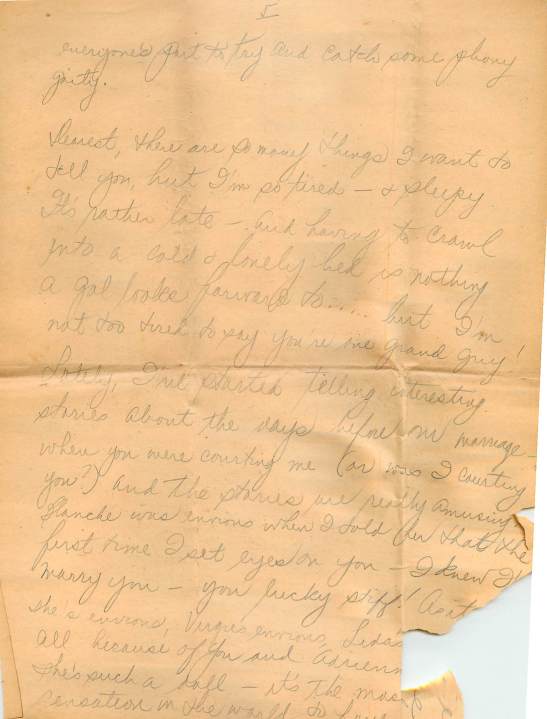 5
everyone's part to try and catch some phony
gaity.
Dearest, there are so many things I want to
tell you, but I'm so tired - & sleepy.
It's rather late - and having to crawl
into a cold & lonely bed is nothing
a gal looks forward to..... but I'm
not too tired to say you're one grand guy!
Lately, I've started telling interesting
stories about the days before our marriage -
when you were courting me (or was I courting
you?) and the stories are really amusing -
Blanche was envious when I told her that the
first time I set eyes on you - I knew I'
marry you - you lucky stiff! As it
she's envious, Virgie's envious, Leda's
all because of you and Adrienn
She's such a doll - it's the mos
sensation in the world to